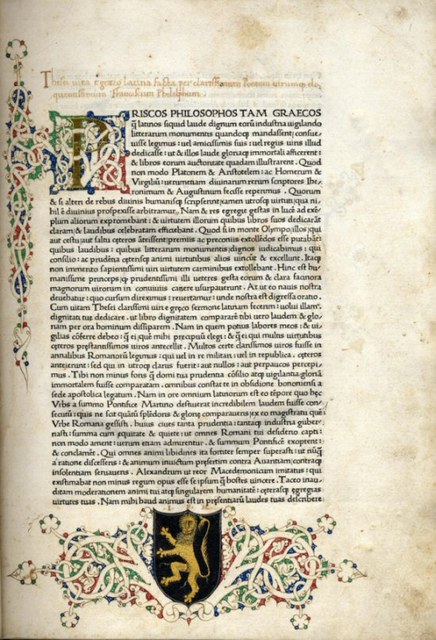 Thesei vita e greco latina facta per clarissimum Poetam virumq; elo
quentissimum Franciscum Philelphum.
PRISCOS PHILOSOPHOS TAM GRAECOS
q̃ latinos siquid laude dignum eorũ industria uigilando
litterarum monumentis quandoq; mandassent: consue
uisse legimus: uel amicissimis suis: uel regiis uiris illud
dedicasse: ut & illos laude gloriaq; immortali afficerent:
& libros eorum auctoritate quadam illustrarent. Quod
non modo Platonem & Aristotelem: ac Homerum &
Virgiliũ: uerumetiam diuinarum rerum scriptores Ihe
ronimum & Augustinum fecisse reperimus. Quorum
& si alteri de rebus diuinis humanisq; scripserint: tamen utrosq; uirtutis: qua ni
hil ẽ diuinius prospexisse arbitramur. Nam & res egregie gestas in lucẽ ad exẽ
plum aliorum expromebant: & uirtutem illorum quibus libros suos dedicarãt
claram: & laudibus celebratam efficiebant. Quod si in monte Olympo: illos: qui
aut cestu: aut saltu ceteros
quibus laudibus: quibus litterarum monumentis: dignos iudicabimus: qui
consilio: ac prudẽtia ceterosq; animi uirtutibus alios uincit & excellunt. Itaq;
non immerito sapientissimi uiri uirtutem carminibus extollebant. Hinc est: hu
manissime princeps: iq; prudentissimi illi ueteres gesta eorum & clara facinora
magnorum uirorum in conuiuiis canere usurpauerunt. At ut eo nauis nostra
deuehatur: quo cursum direximus: reuertamur: unde nostra est digressa oratio.
Cum uitam Thesei clarissimi uiri e greco sermone latinam fecerim: uolui illam:
dignitati tuæ dedicare: ut libro dignitatem compararẽ tibi uero laudem & glo,
riam per ora hominum differrem. Nam in quem potius labores meos: & ui,
gilias cõferre debeo: q̃ ei: quẽ mihi precipuũ elegi: & q̃ ei qui multis uirtutibus
ceteros prestantissimos uiros antecellit. Multos certe clarissimos uiros fuisse in
annalibus Romanorũ legimus: qui uel in re militari: uel in republica: ceteros
anteierunt: sed qui in utroq; clarus fuerit: aut nullos: aut perpaucos percepi
mus. Tibi non minus foris q̃ domi tua prudentia: cõsilio atq; uigilantia gloriã
immortalem fuisse comparatam: omnibus constat te in obsidione bononiensi a
sede apostolica legatum. Nam in ore omnium latinorum est eo tẽpore quo hęc
Vrbs a summo Pontifice Martino destituta: incredibilem laudem fuisse con
secutũ: quis ne fot
Vrbe Romana gessisti. huius ciuis tanta prudentia: tantaq; industria guber
nasti: summa cum ęquitate & quiete: ut omnes Romani tui desiderio capti:
non modo ament: uerum etiam admirentur: & summum Pontificẽ exoptent:
& conclament. Qui omnes animi libidines ita fortiter semper superasti: ut nũq̃
a ratione discesseris: & animum inuictum presertim contra Auaritiam: contraq;
insolentiam seruaueris. Alexandrum ut reor Macedemonicum imitatus: qui
existimabat non minus regum opus esse se ipsum q̃ hostes uincere. Taceo inau
ditam moderationem animi tui atq; singularem humanitatẽ: ceterasq; egregias
uirtutes tuas. Nam mihi haud animus est in presentiarũ laudes tuas describere